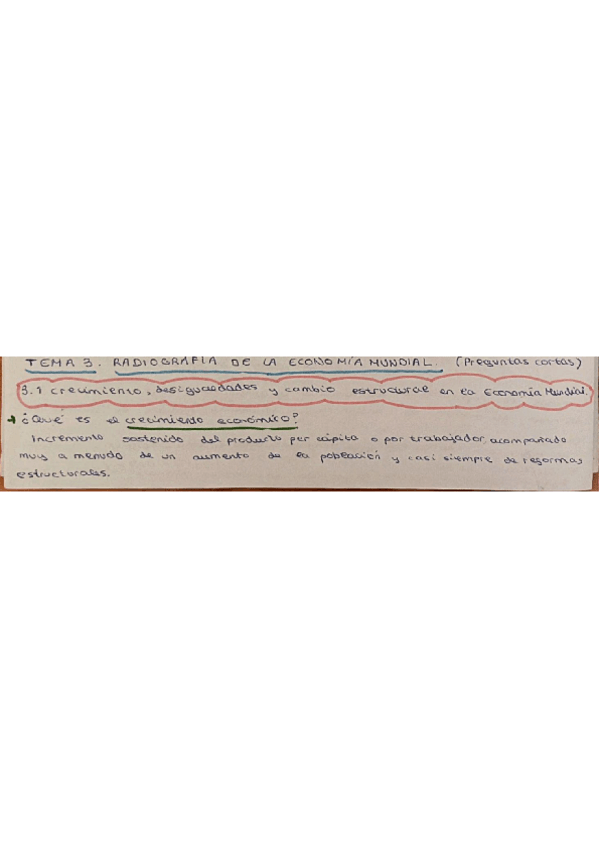 TEMA 3. RADIOGRAFÍA DE LA ECONOMÍA MUNDIAL. (Preguntas cortas)
3.1 crecimiento, desigualdades y cambio estructural en la Economía Mundial.
→ ¿Qué es el crecimiento económico?
Incremento sostenido del producto per cápita o por trabajador, acompañado
muy a menudo de un aumento de la población y casi siempre de reformas
estructurales.